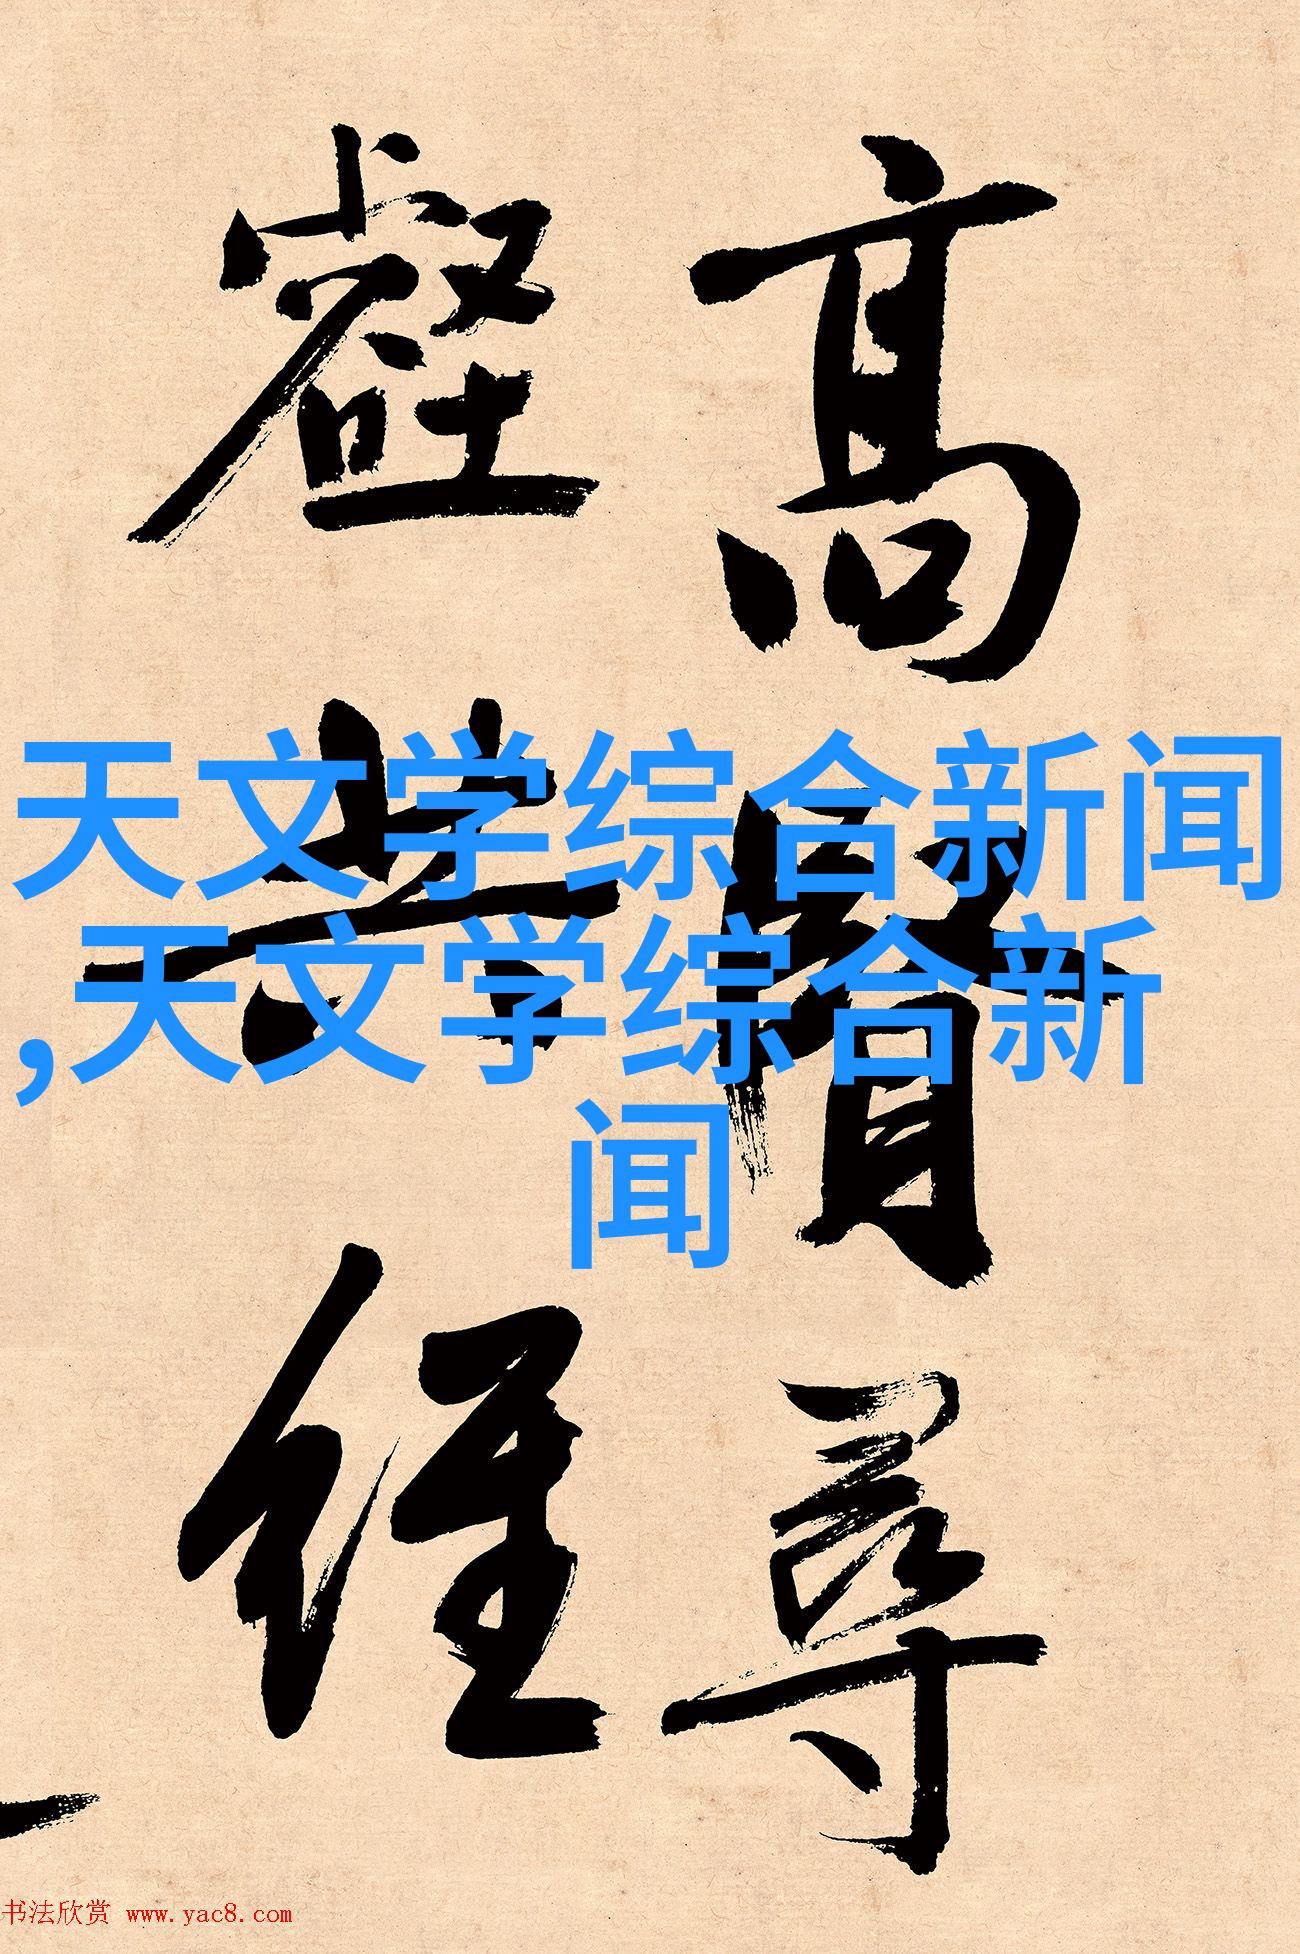 高賢尋
壑共經
天文学综合新闻
,天文学综合新
闻
书法欣赏 www.yac8.com